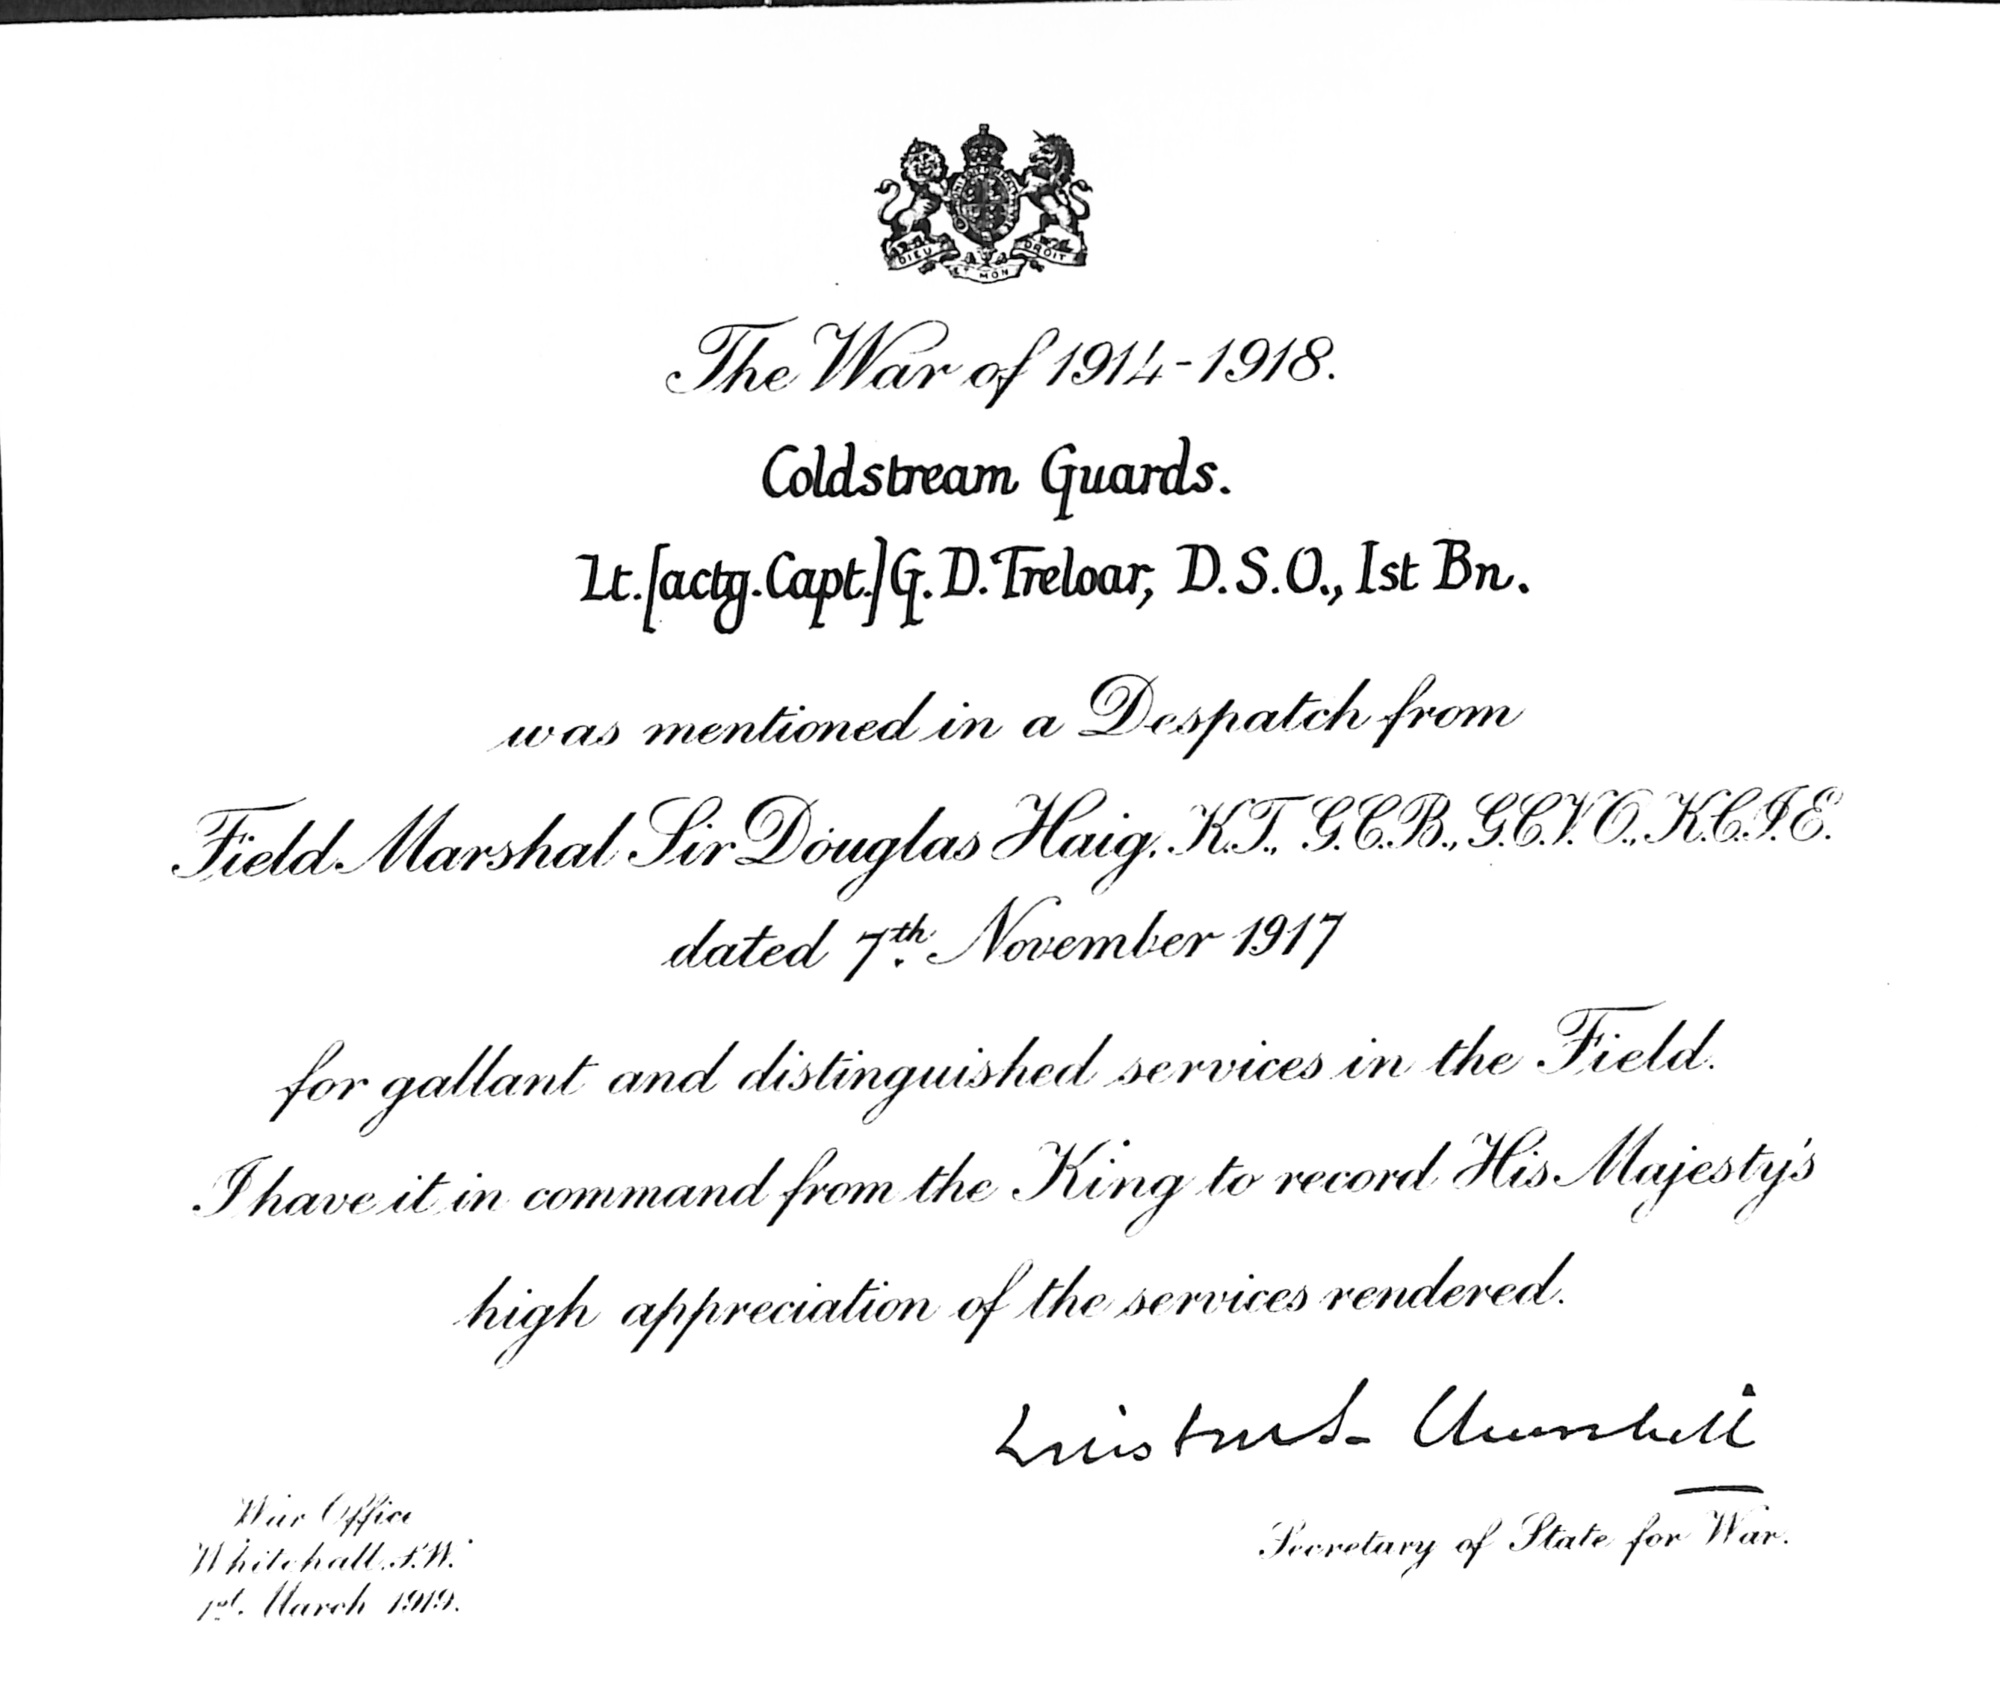 DIEU ET MON DROIT
The War of 1914-1918.
Coldstream Guards.
Lt.[actg.Capt.] G. D. Treloar, D.S.O., 1st Bn.
was mentioned in a Despatch from
Field Marshal Sir Douglas Haig, K.T., G.C.B., G.C.V.O., K.C.I.E.
dated 7th November 1917
for gallant and distinguished services in the Field.
I have it in command from the King to record His Majesty's
high appreciation of the services rendered.
Winston S. Churchill
Secretary of State for War.
War Office
Whitehall, S.W.
1st. March 1919.